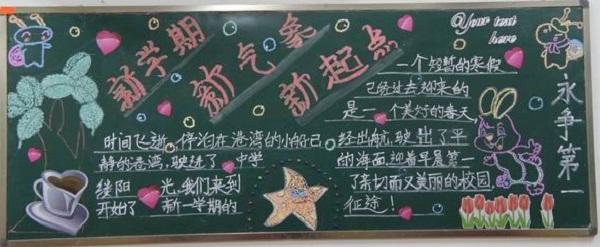 新学期
新气象
新起点
Your text
here
一个短暂的寒假
已经过去,迎来的
是一个美好的春天,
时间飞逝,停泊在港湾的小船已经出航,驶出了平
静的港湾,驶进了中学的海面,迎着早晨第一
缕阳光,我们来到了亲切而又美丽的校园,
开始了新一学期的征途!
永争第一